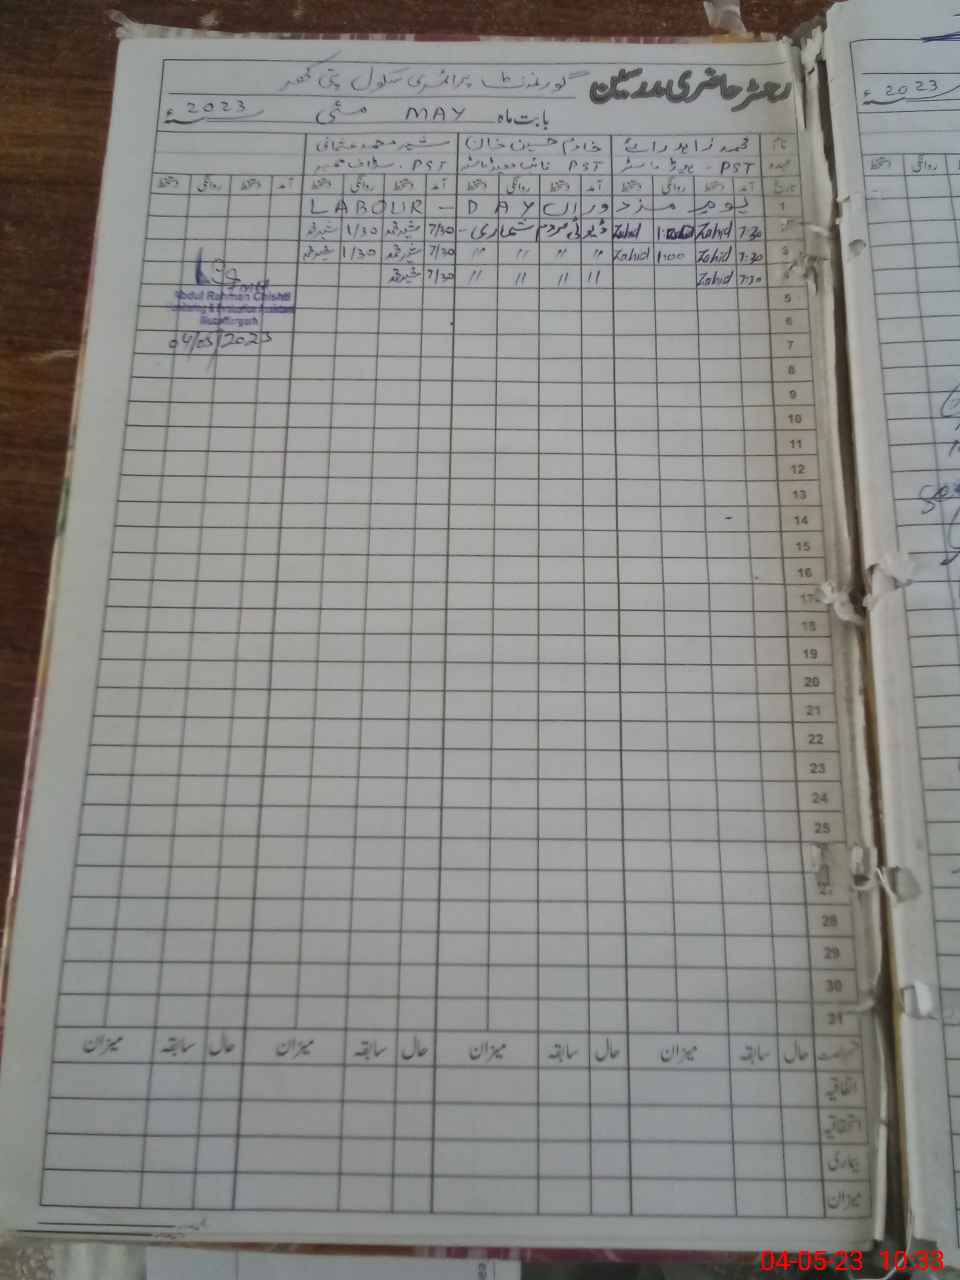 رجسٹر حاضری مدرسین گورنمنٹ پرائمری سکول
بابت ماہ MAY مئی 2023ء
نام محمد زاہد خادم حسین خان شبیر محمد
عہدہ PST - ہیڈ ماسٹر PST PST - سٹاف ممبر
تاریخ آمد دستخط روانگی دستخط آمد دستخط روانگی دستخط آمد دستخط روانگی دستخط آمد دستخط روانگی دستخط
1 یوم مزدوراں - LABOUR DAY
7:30 Zahid Zahid ڈیوٹی مردم شماری - 7/30 1/30
3 7:30 Zahid 1:00 Zahid " " " " 7/30 1/30
7:30 Zahid " " " " 7/30
Abdul Rahman Chishti
Monitoring & Evaluation Assistant
Muzaffargarh
04/05/2023
5
6
7
8
9
10
11
12
13
14
15
16
17
18
19
20
21
22
23
24
25
27
28
29
30
31
حال سابقہ میزان حال سابقہ میزان حال سابقہ میزان حال سابقہ میزان
اتفاقیہ
استحقاقیہ
بیماری
میزان
2023ء
دستخط روانگی
04-05-23 10:33